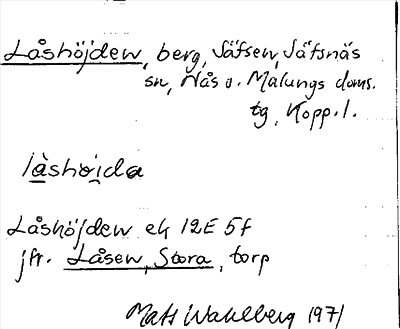 Låshöjden, berg, Säfsen, Säfsnäs
sn, Nås o. Malungs doms.
tg, Kopp. l.
låshöjda
Låshöjden ek 12E 5f
jfr. Låsen, Stora, torp
Mats Wahlberg 1971